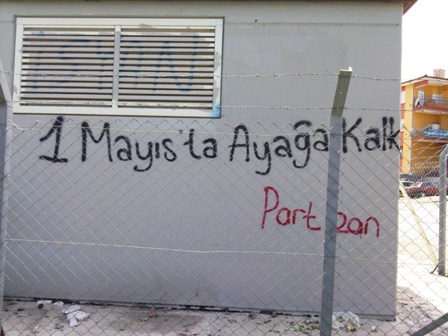 1 Mayıs'ta Ayağa Kalk
Partizan